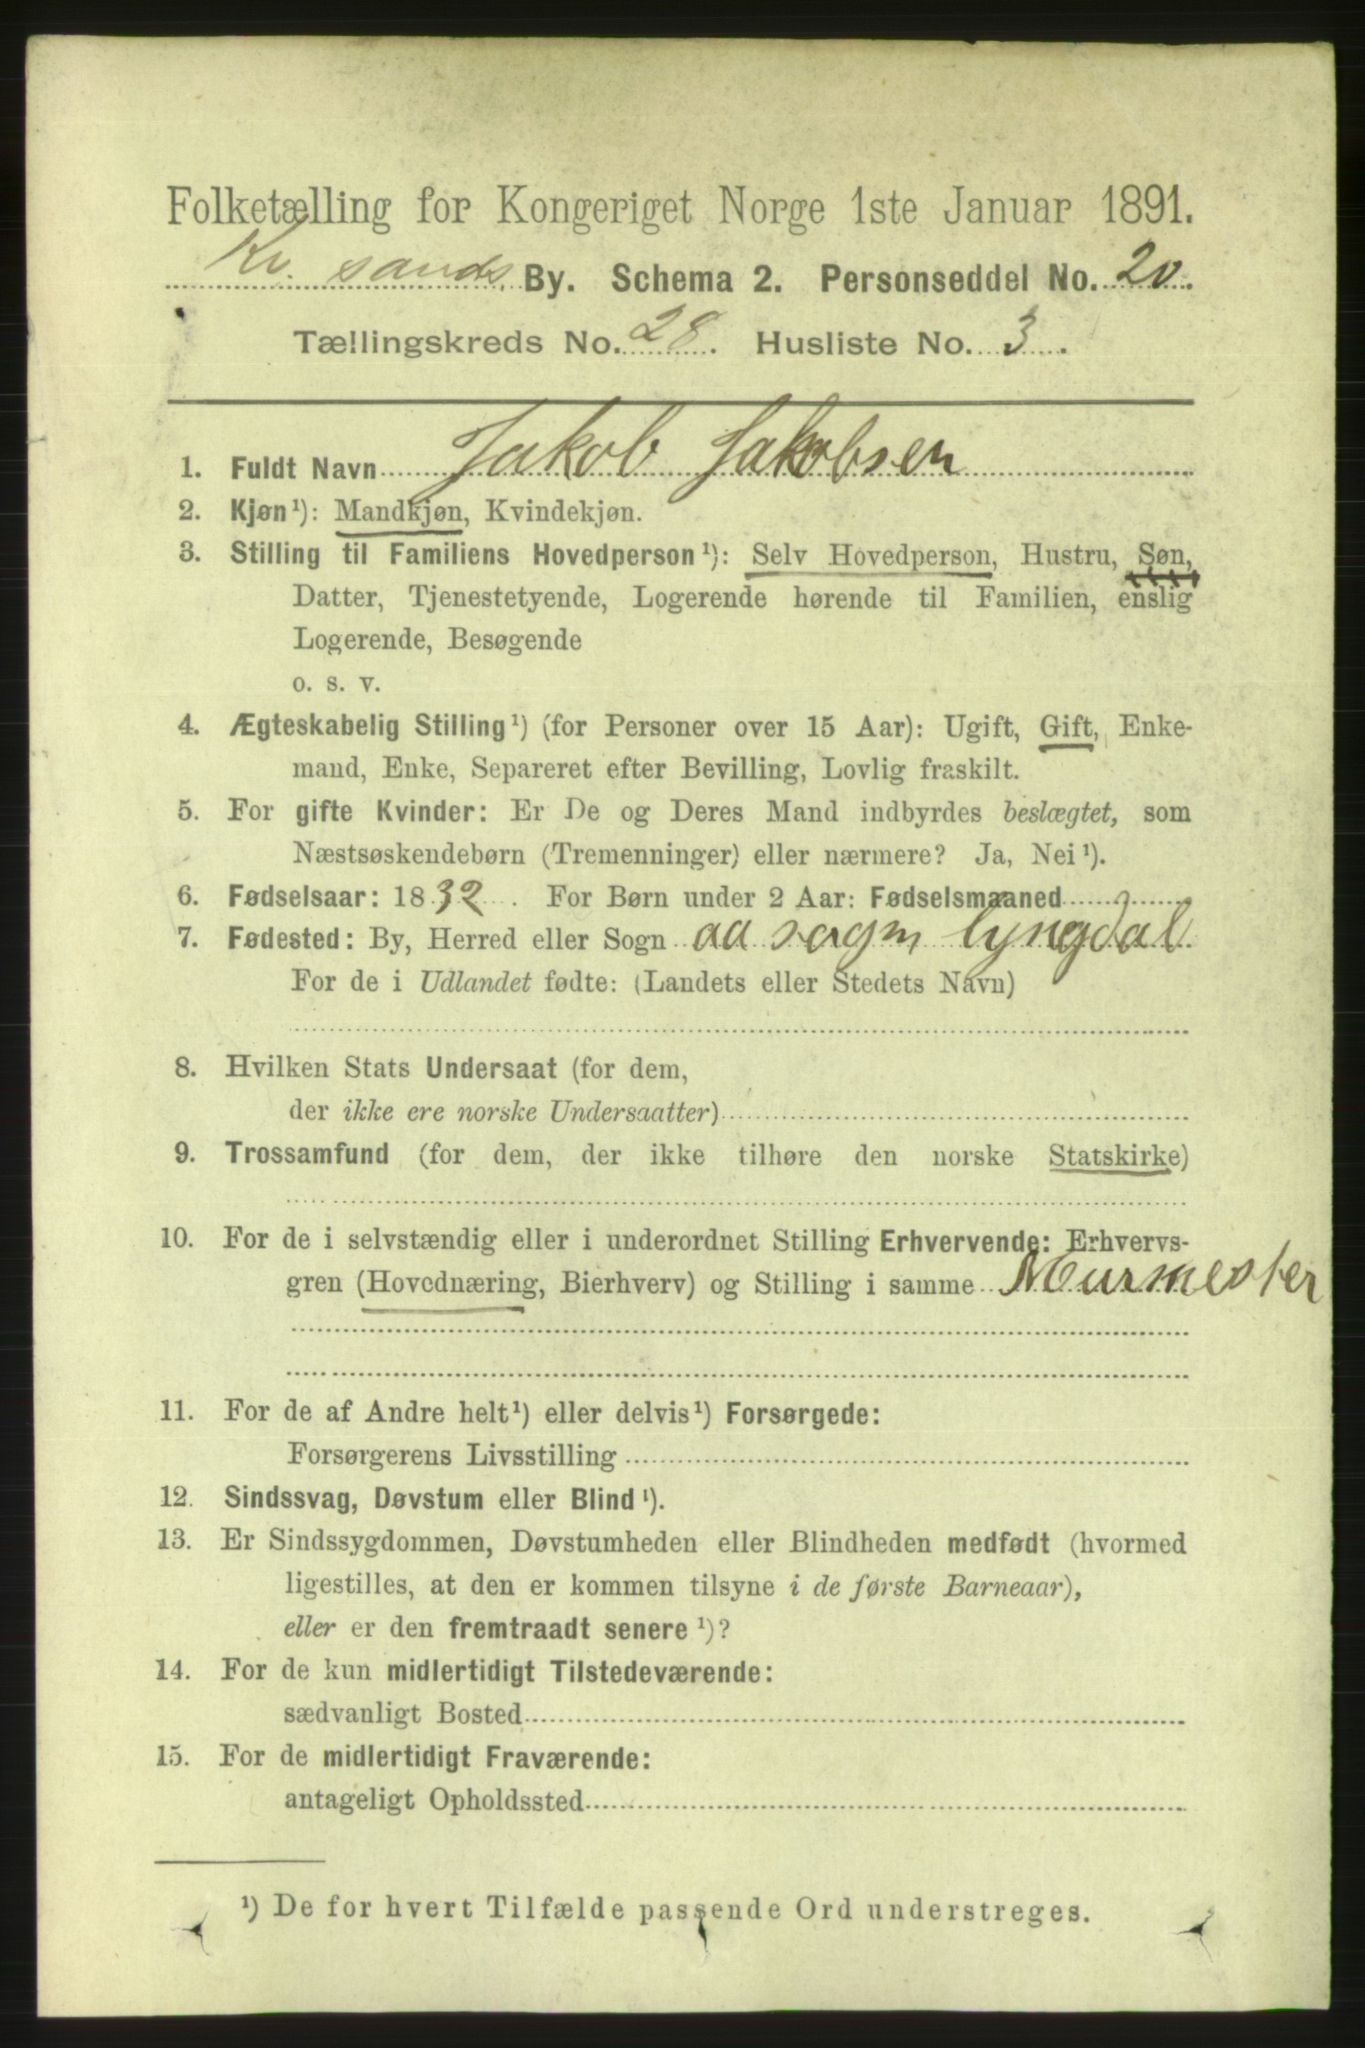 Folketælling for Kongeriget Norge 1ste Januar 1891.
Kr. sands By. Schema 2. Personseddel No. 20.
Tællingskreds No. 28. Husliste No. 3.
1. Fuldt Navn Jakob Jakobsen
2. Kjøn¹): Mandkjøn, Kvindekjøn.
3. Stilling til Familiens Hovedperson¹): Selv Hovedperson, Hustru, Søn,
Datter, Tjenestetyende, Logerende hørende til Familien, enslig
Logerende, Besøgende
o. s. v.
4. Ægteskabelig Stilling¹) (for Personer over 15 Aar): Ugift, Gift, Enke-
mand, Enke, Separeret efter Bevilling, Lovlig fraskilt.
5. For gifte Kvinder: Er De og Deres Mand indbyrdes beslægtet, som
Næstsøskendebørn (Tremenninger) eller nærmere? Ja, Nei¹).
6. Fødselsaar: 1832. For Børn under 2 Aar: Fødselsmaaned
7. Fødested: By, Herred eller Sogn aa sogn lyngdal
For de i Udlandet fødte: (Landets eller Stedets Navn)
8. Hvilken Stats Undersaat (for dem,
der ikke ere norske Undersaatter)
9. Trossamfund (for dem, der ikke tilhøre den norske Statskirke)
10. For de i selvstændig eller i underordnet Stilling Erhvervende: Erhvervs-
gren (Hovednæring, Bierhverv) og Stilling i samme Murmester
11. For de af Andre helt¹) eller delvis¹) Forsørgede:
Forsørgerens Livsstilling
12. Sindssvag, Døvstum eller Blind¹).
13. Er Sindssygdommen, Døvstumheden eller Blindheden medfødt (hvormed
ligestilles, at den er kommen tilsyne i de første Barneaar),
eller er den fremtraadt senere¹)?
14. For de kun midlertidigt Tilstedeværende:
sædvanligt Bosted
15. For de midlertidigt Fraværende:
antageligt Opholdssted
¹) De for hvert Tilfælde passende Ord understreges.